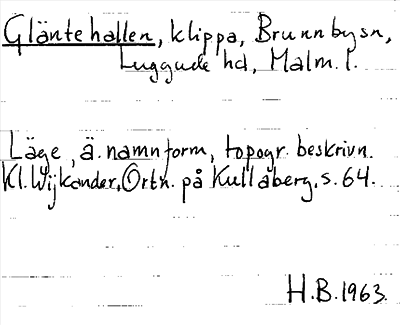 Gläntehallen, klippa, Brunnbysn,
Luggude hd, Malm. l.
Läge, ä. namnform, topogr. beskrivn.
Kl. Wijkander, Ortn. på Kullaberg, s. 64.
H.B. 1963.